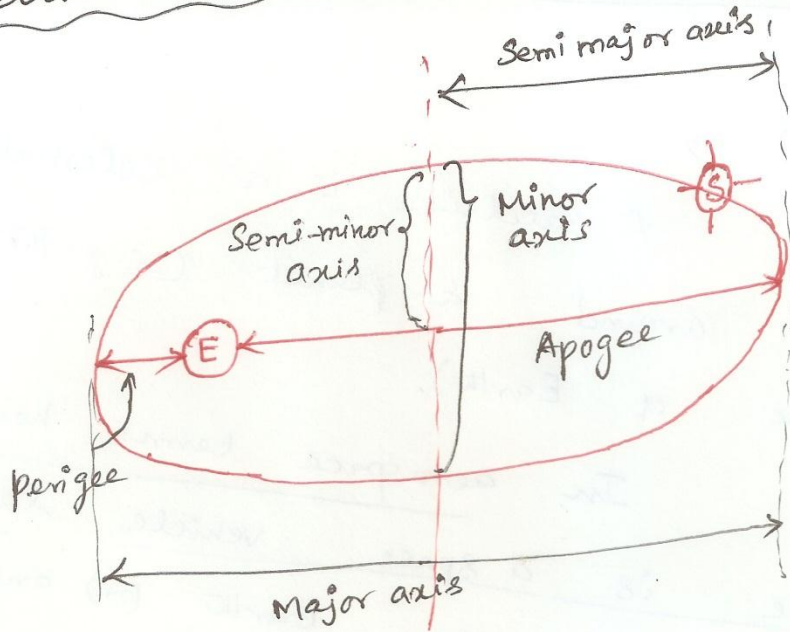 Semi major axis
S
Semi-minor
axis
Minor
axis
E
Apogee
perigee
Major axis